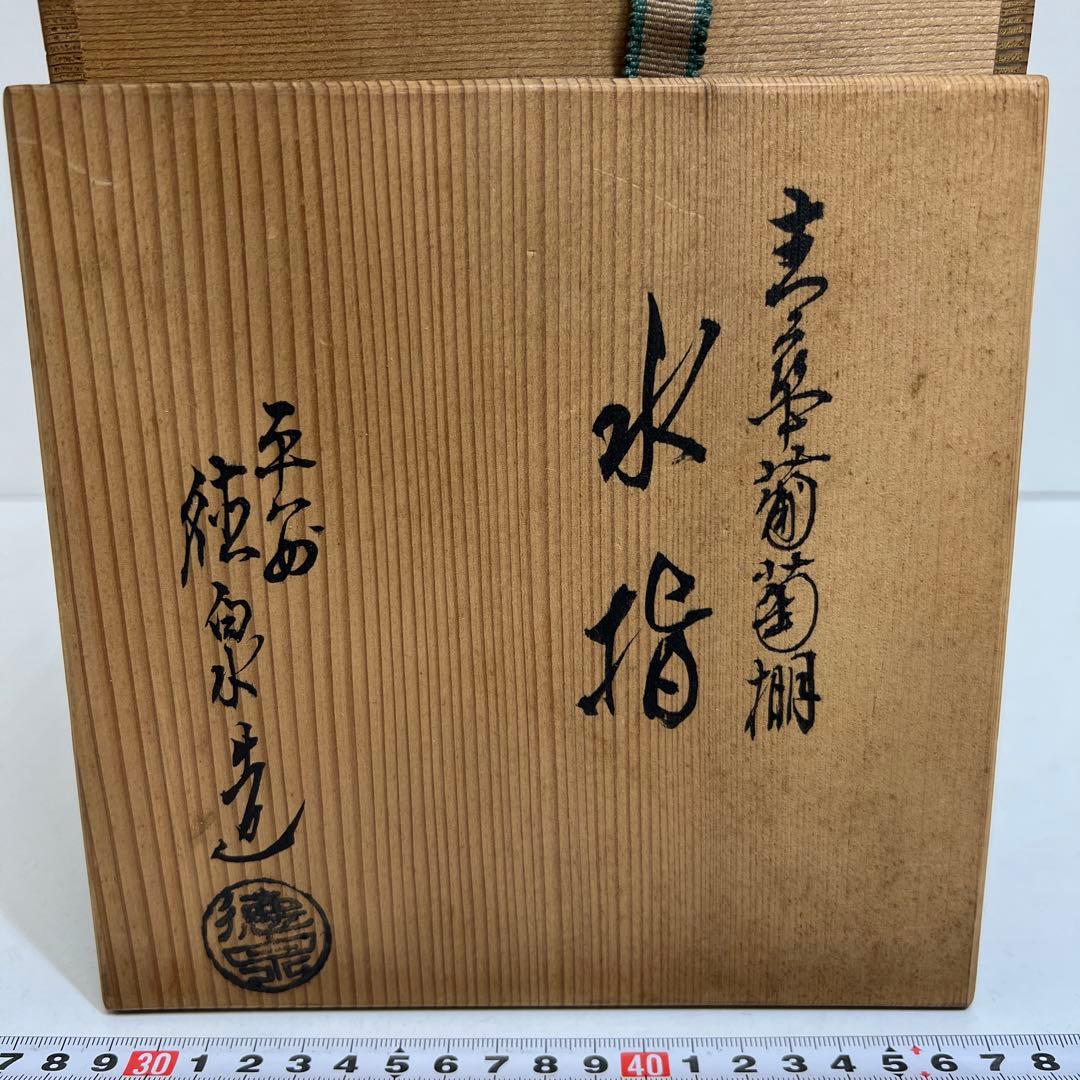 青華葡萄棚
水指
平安
徳泉造
徳泉
7 8 9 30 1 2 3 4 5 6 7 8 9 40 1 2 3 4 5 6 7 8